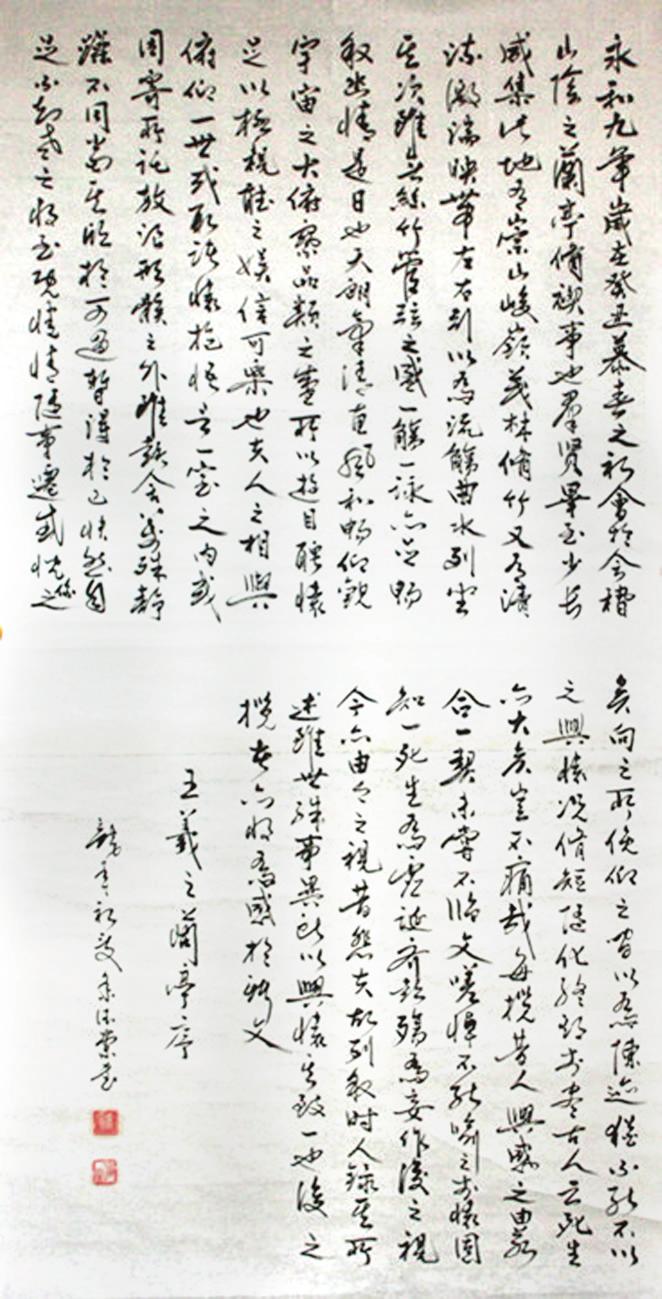 永和九年歲在癸丑暮春之初會於會稽
山陰之蘭亭脩禊事也羣賢畢至少長
咸集此地有崇山峻嶺茂林脩竹又有清
流激湍映帶左右引以為流觴曲水列坐
其次雖無絲竹管弦之盛一觴一詠亦足暢
敘幽情是日也天朗氣清惠風和暢仰觀
宇宙之大俯察品類之盛所以遊目騁懷
足以極視聽之娛信可樂也夫人之相與
俯仰一世或取諸懷抱悟言一室之內或
因寄所託放浪形骸之外雖趣舍萬殊靜
躁不同當其欣於所遇暫得於己快然自
足不知老之將至既惓情隨事遷感慨係之
矣向之所俛仰之間以為陳迹猶不能不以
之興懷況脩短隨化終期於盡古人云死生
亦大矣豈不痛哉每攬昔人興感之由若
合一契未嘗不臨文嗟悼不能喻之於懷固
知一死生為虛誕齊彭殤為妄作後之視
今亦由今之視昔悲夫故列敘時人錄其所
述雖世殊事異所以興懷其致一也後之
攬者亦將有感於斯文
王羲之蘭亭序
初夏